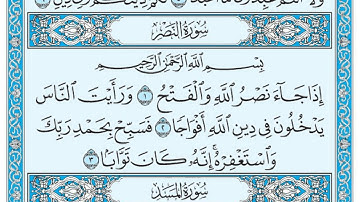 وَلَا أَنتُمْ عَٰبِدُونَ مَا أَعْبُدُ ۝٥ لَكُمْ دِينُكُمْ وَلِيَ دِينِ ۝٦
سُورَةُ النَّصْرِ
بِسْمِ ٱللَّهِ ٱلرَّحْمَٰنِ ٱلرَّحِيمِ
إِذَا جَآءَ نَصْرُ ٱللَّهِ وَٱلْفَتْحُ ۝١ وَرَأَيْتَ ٱلنَّاسَ
يَدْخُلُونَ فِى دِينِ ٱللَّهِ أَفْوَاجًا ۝٢ فَسَبِّحْ بِحَمْدِ رَبِّكَ
وَٱسْتَغْفِرْهُ إِنَّهُۥ كَانَ تَوَّابًۢا ۝٣
سُورَةُ المَسَدِ